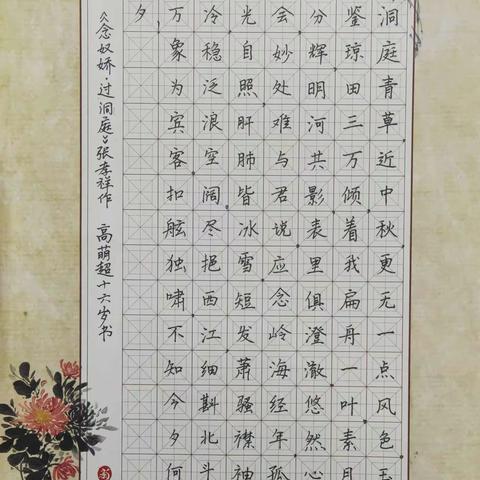 洞庭青草近中秋更无一点风色玉
鉴琼田三万倾着我扁舟一叶素月
分辉明河共影表里俱澄澈悠然心
会妙处难与君说应念岭海经年孤
光自照肝肺皆冰雪短发萧骚襟袖
冷稳泛浪空阔尽挹西江细斟北斗
万象为宾客扣舷独啸不知今夕何
夕
《念奴娇·过洞庭》张孝祥作 高萌超十六岁书